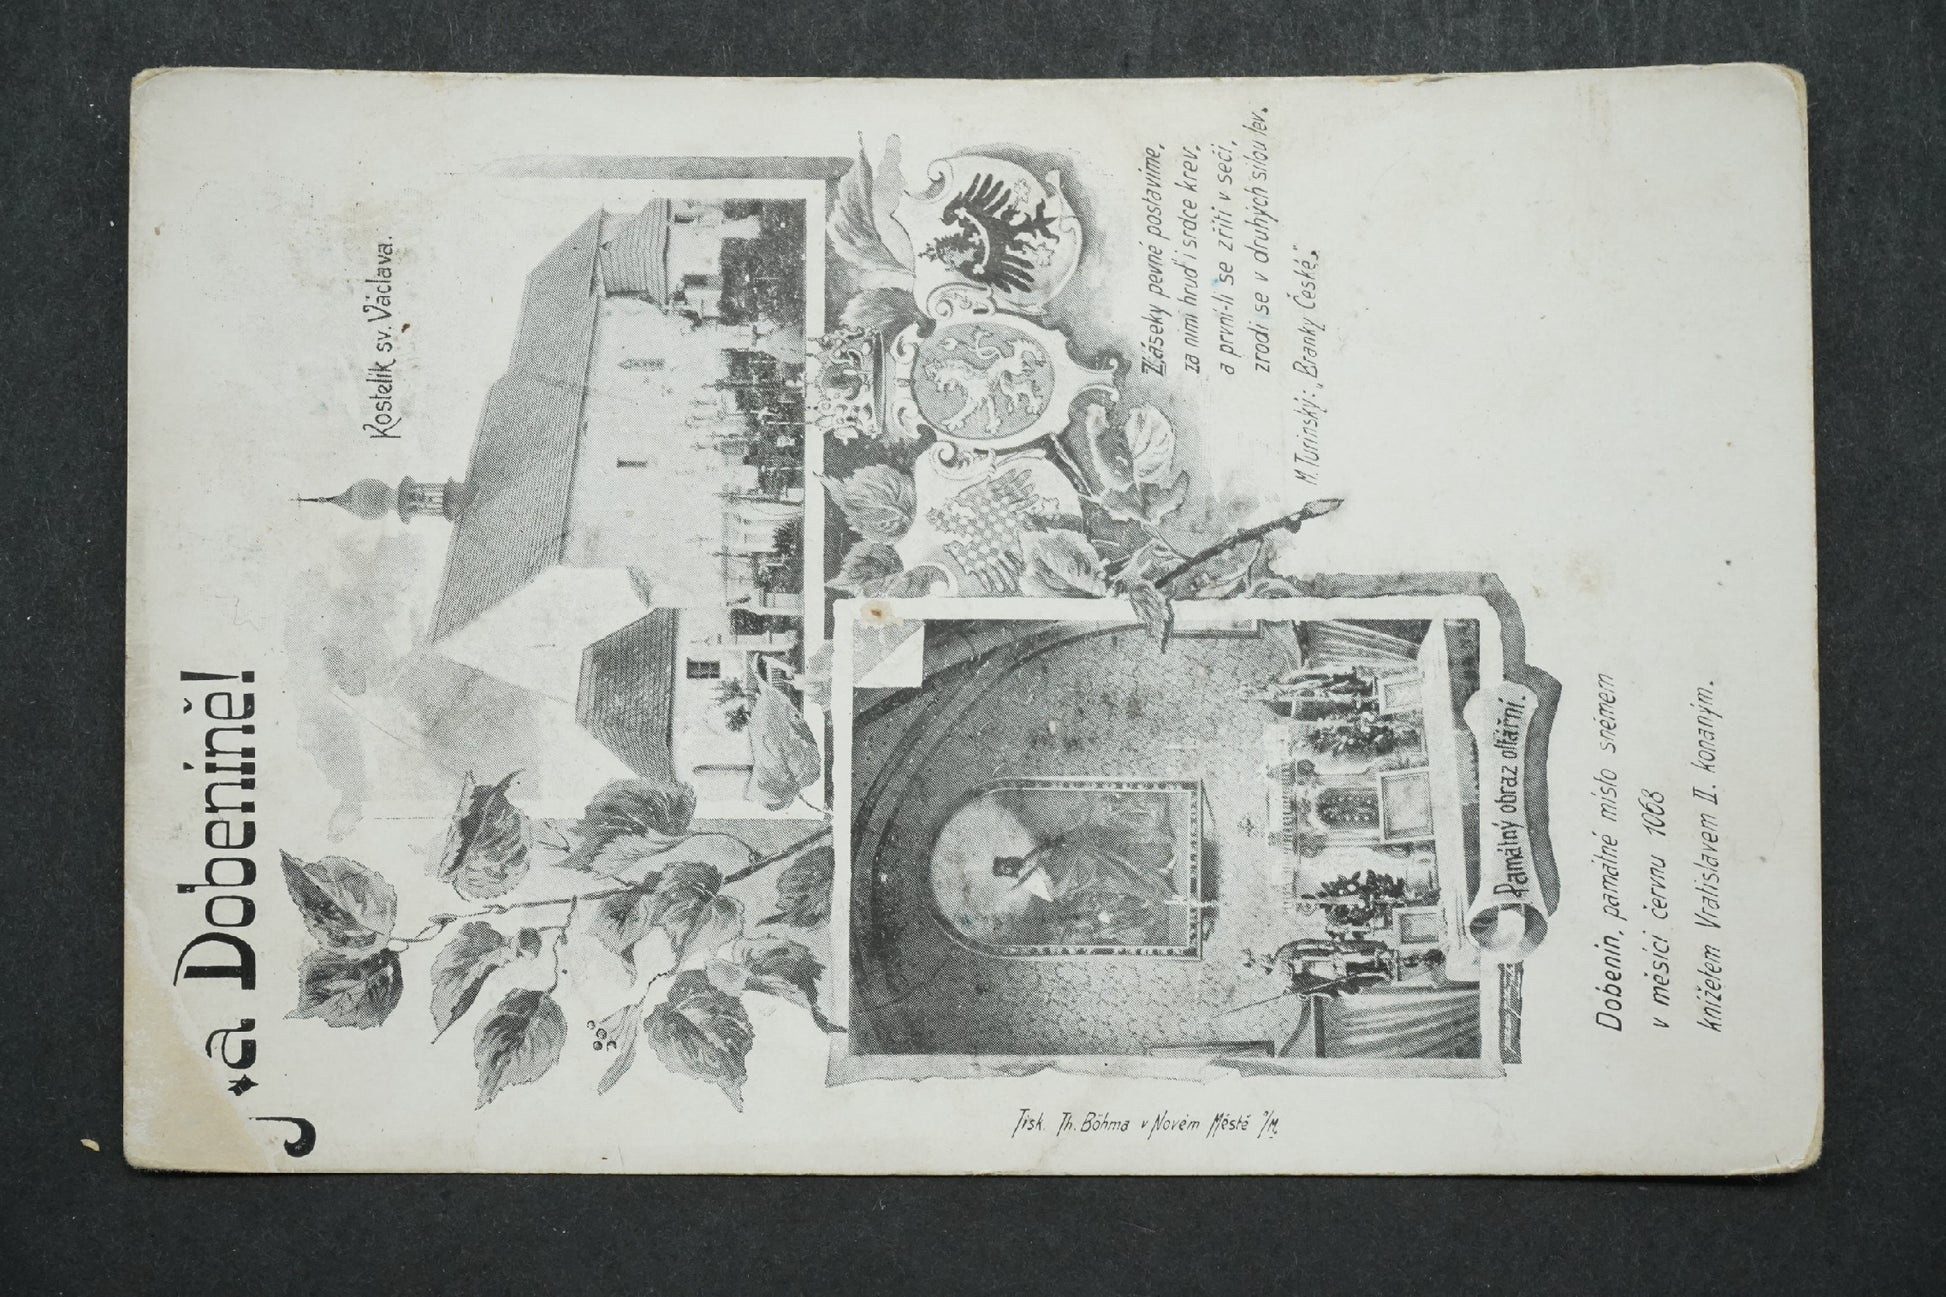 a Dobeníně!
Kostelík sv. Václava.
Záseky pevné postavíme,
za nimi hruď i srdce krev,
a první-li se zřítí v seči,
zrodí se v druhých silou lev.
M. Turinský: „Branky České."
Památný obraz oltářní.
Dobenín, památné místo sněmem
v měsíci červnu 1068
knížetem Vratislavem II. konaným.
Tisk. Th. Böhma v Novém Městě n/M.